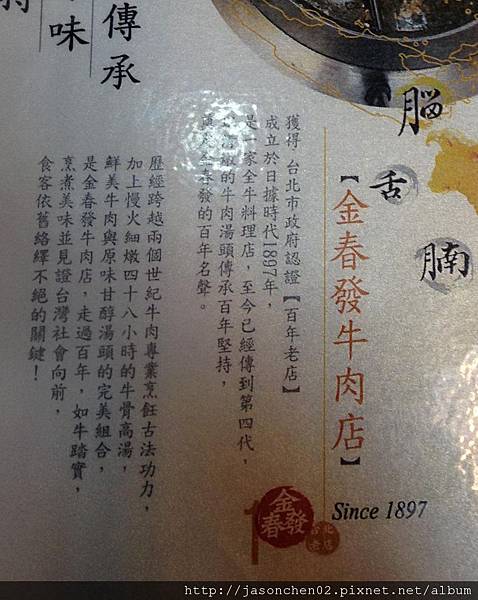 腦
舌
腩
【金春發牛肉店】
Since 1897
獲得 台北市政府認證【百年老店】
成立於日據時代1897年，
是一家全牛料理店，至今已經傳到第四代，
嫩的牛肉湯頭傳承百年堅持，
金春發的百年名聲。
歷經跨越兩個世紀牛肉專業烹飪古法功力，
加上慢火細燉四十八小時的牛骨高湯，
鮮美牛肉與原味甘醇湯頭的完美組合，
是金春發牛肉店，走過百年，如牛踏實，
烹煮美味並見證台灣社會向前，
食客依舊絡繹不絕的關鍵！
傳承
味
金春發
台北老店
http://jasonchen02.pixnet.net/album